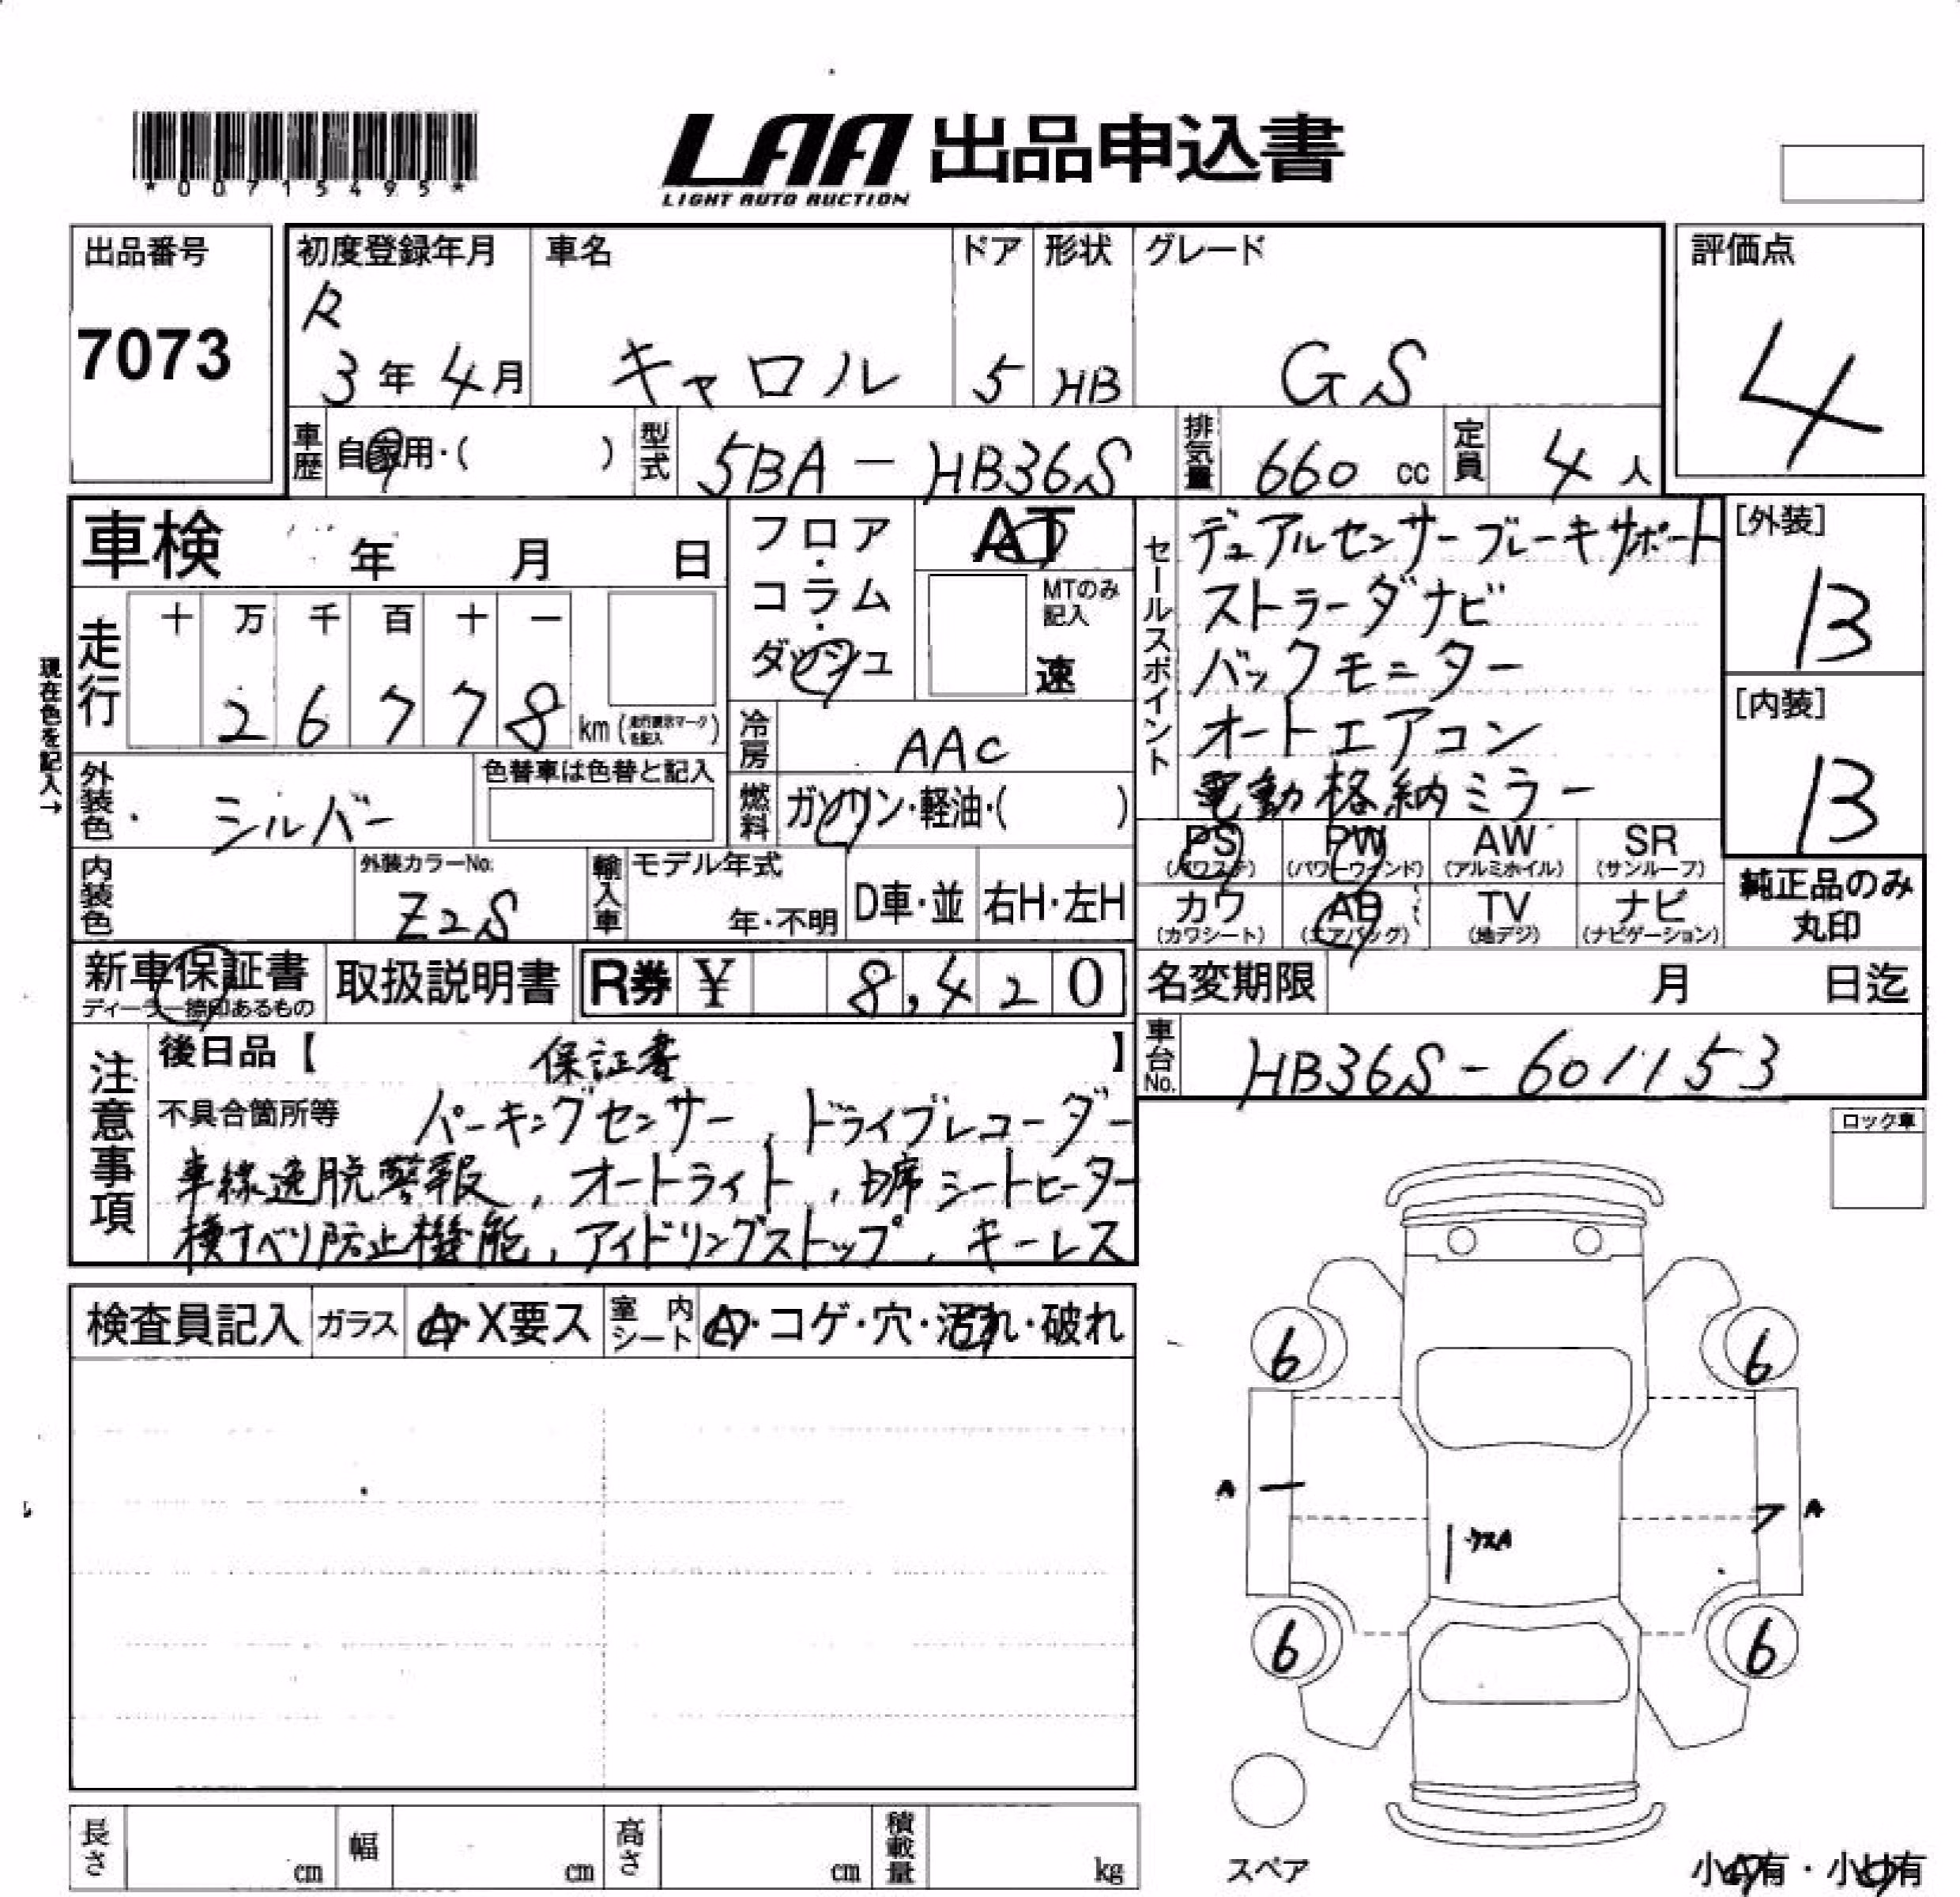 *00715495*
LAA 出品申込書
LIGHT AUTO AUCTION
出品番号
7073
初度登録年月
R
3年4月
車名
キャロル
ドア
5
形状
HB
グレード
GS
評価点
4
車歴
自家用・( )
型式
5BA-HB36S
排気量
660 cc
定員
4人
車検 年 月 日
現在色を記入→
走行
十 万 千 百 十 一
2 6 7 7 8 km
フロア・コラム・ダッシュ
AT
MTのみ記入
速
冷房
AAC
燃料
ガソリン・軽油・( )
外装色
シルバー
色替車は色替と記入
内装色
外装カラーNo.
Z2S
輸入車
モデル年式
年・不明
D車・並
右H・左H
新車保証書
取扱説明書
R券 ¥ 8,420
セールスポイント
デュアルセンサーブレーキサポート
ストラーダナビ
バックモニター
オートエアコン
電動格納ミラー
[外装]
B
[内装]
B
PS
(パワステ)
PW
(パワーウインド)
AW
(アルミホイル)
SR
(サンルーフ)
カワ
(カワシート)
AB
(エアバッグ)
TV
(地デジ)
ナビ
(ナビゲーション)
純正品のみ
丸印
名変期限 月 日迄
車台No.
HB36S-601153
注意事項
後日品【 保証書 】
不具合箇所等 パーキングセンサー, ドライブレコーダー
車線逸脱警報, オートライト, D席シートヒーター
横すべり防止機能, アイドリングストップ, キーレス
ロック車
検査員記入
ガラス
A・X要ス
室内シート
A・コゲ・穴・汚れ・破れ
6
6
A
A
ウスA
6
6
スペア
長さ cm
幅 cm
高さ cm
積載量 kg